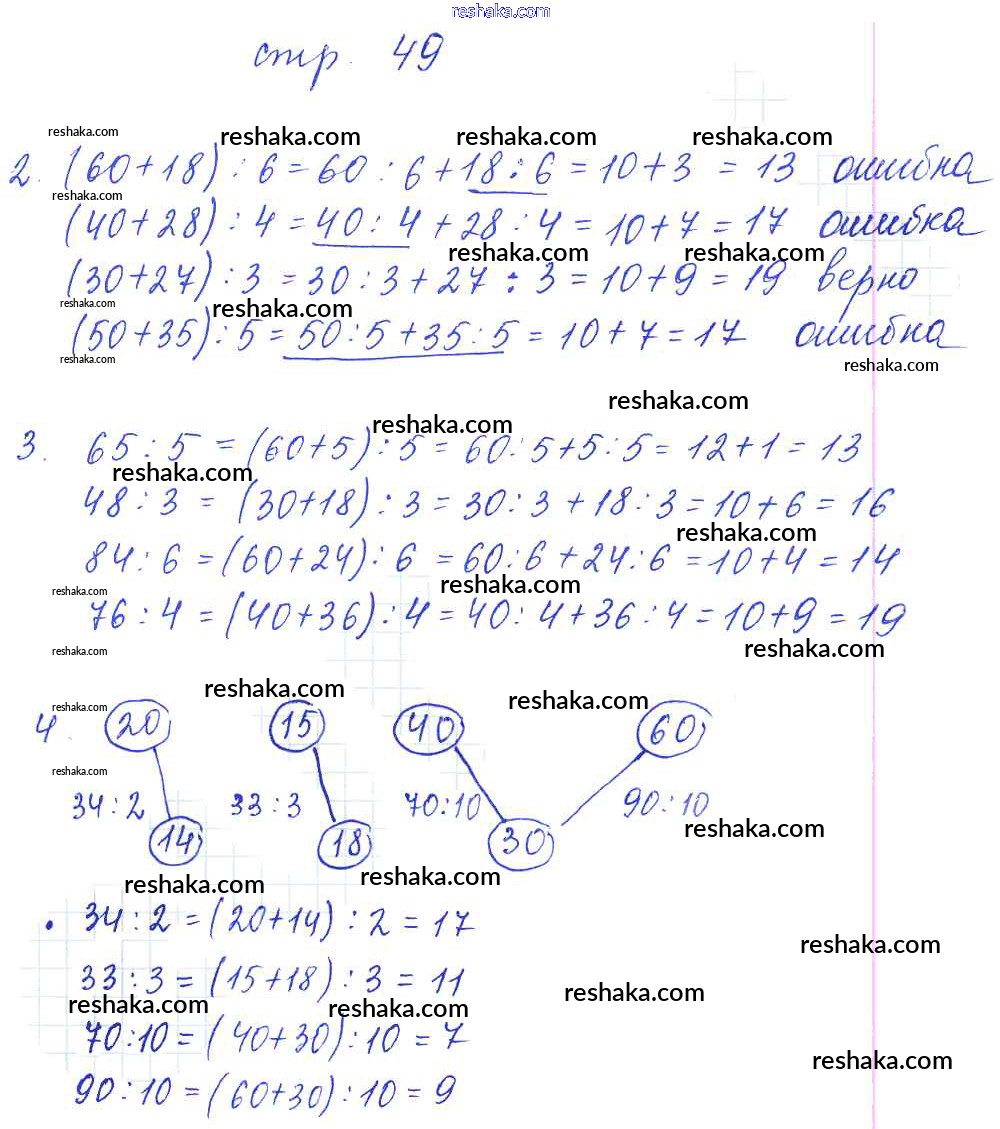 reshaka.com
стр. 49
reshaka.com reshaka.com reshaka.com reshaka.com
2. (60+18) : 6 = 60 : 6 + 18 : 6 = 10 + 3 = 13 ошибка
reshaka.com
(40+28) : 4 = 40 : 4 + 28 : 4 = 10 + 7 = 17 ошибка
reshaka.com reshaka.com
(30+27) : 3 = 30 : 3 + 27 : 3 = 10 + 9 = 19 верно
reshaka.com reshaka.com
(50+35) : 5 = 50 : 5 + 35 : 5 = 10 + 7 = 17 ошибка
reshaka.com reshaka.com
reshaka.com
reshaka.com
3. 65 : 5 = (60+5) : 5 = 60 : 5 + 5 : 5 = 12 + 1 = 13
reshaka.com
48 : 3 = (30+18) : 3 = 30 : 3 + 18 : 3 = 10 + 6 = 16
reshaka.com
84 : 6 = (60+24) : 6 = 60 : 6 + 24 : 6 = 10 + 4 = 14
reshaka.com reshaka.com
76 : 4 = (40+36) : 4 = 40 : 4 + 36 : 4 = 10 + 9 = 19
reshaka.com reshaka.com
reshaka.com reshaka.com
reshaka.com
4. 20 15 40 60
reshaka.com
34 : 2 33 : 3 70 : 10 90 : 10
reshaka.com
14 18 30
reshaka.com reshaka.com
• 34 : 2 = (20+14) : 2 = 17
reshaka.com
33 : 3 = (15+18) : 3 = 11
reshaka.com reshaka.com reshaka.com
70 : 10 = (40+30) : 10 = 7
reshaka.com
90 : 10 = (60+30) : 10 = 9